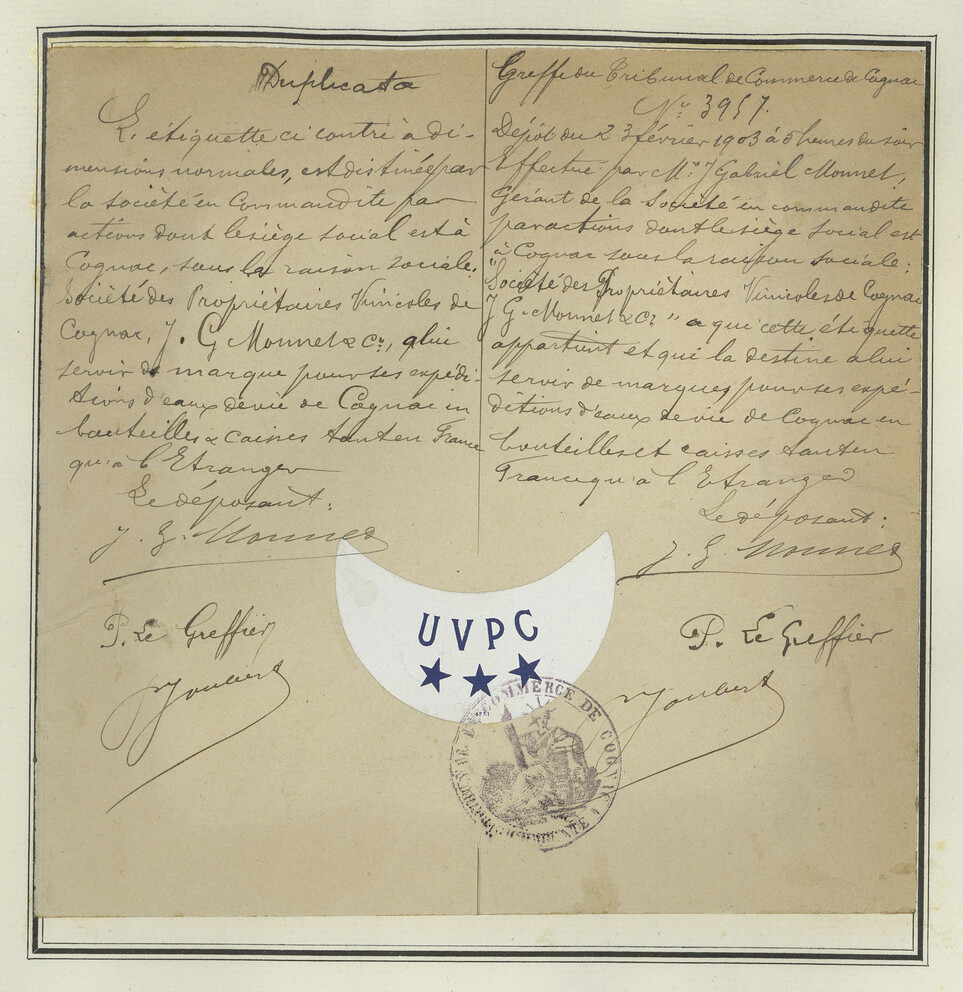 Duplicata
L'étiquette ci contre à di-
mensions normales, est distinée par
la société en Commandite par
actions dont le siège social est à
Cognac, sous la raison sociale.
Société des Propriétaires Vinicoles de
Cognac, J. G Monnet & Co, a lui
servir de marque pour ses expédi-
tions d'eaux de vie de Cognac en
bouteilles & caisses tant en France
qu'à l'Etranger
Le déposant:
J. G. Monnet
P. Le Greffier
Joubert
Greffe du Tribunal de Commerce de Cognac
No 3957.
Dépôt du 23 février 1903 à 5 heures du soir
Effectué par Mr J Gabriel Monnet,
Gérant de la Société en commandite
par actions dont le siège social est
à Cognac sous la raison sociale:
"Société des Propriétaires Vinicoles de Cognac
J G. Monnet & Co" a qui cette étiquette
appartient et qui la destine a lui
servir de marques pour ses expé-
ditions d'eaux de vie de Cognac en
bouteilles et caisses tant en
France qu'à l'Etranger
Le déposant:
J. G. Monnet
P. Le Greffier
Joubert
UVPC
COMMERCE DE COGNAC